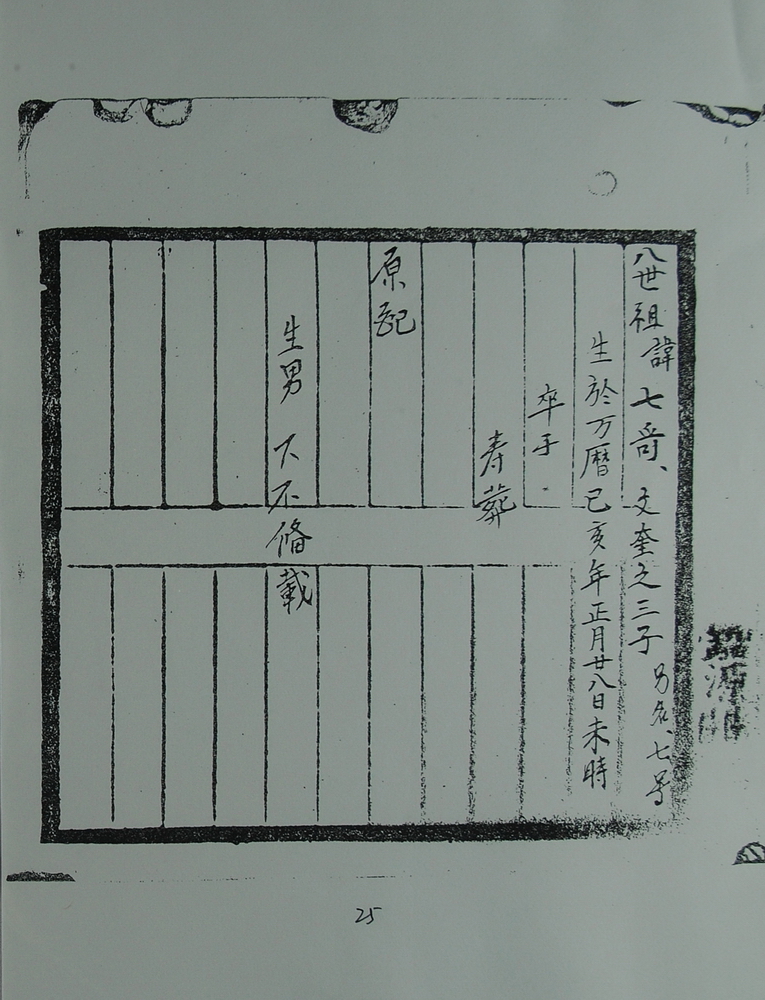 八世祖諱七奇、文奎之三子 另名、七号
生於万曆己亥年正月廿八日未時
卒于
寿 葬
原配
生男 下不俻載
源
25